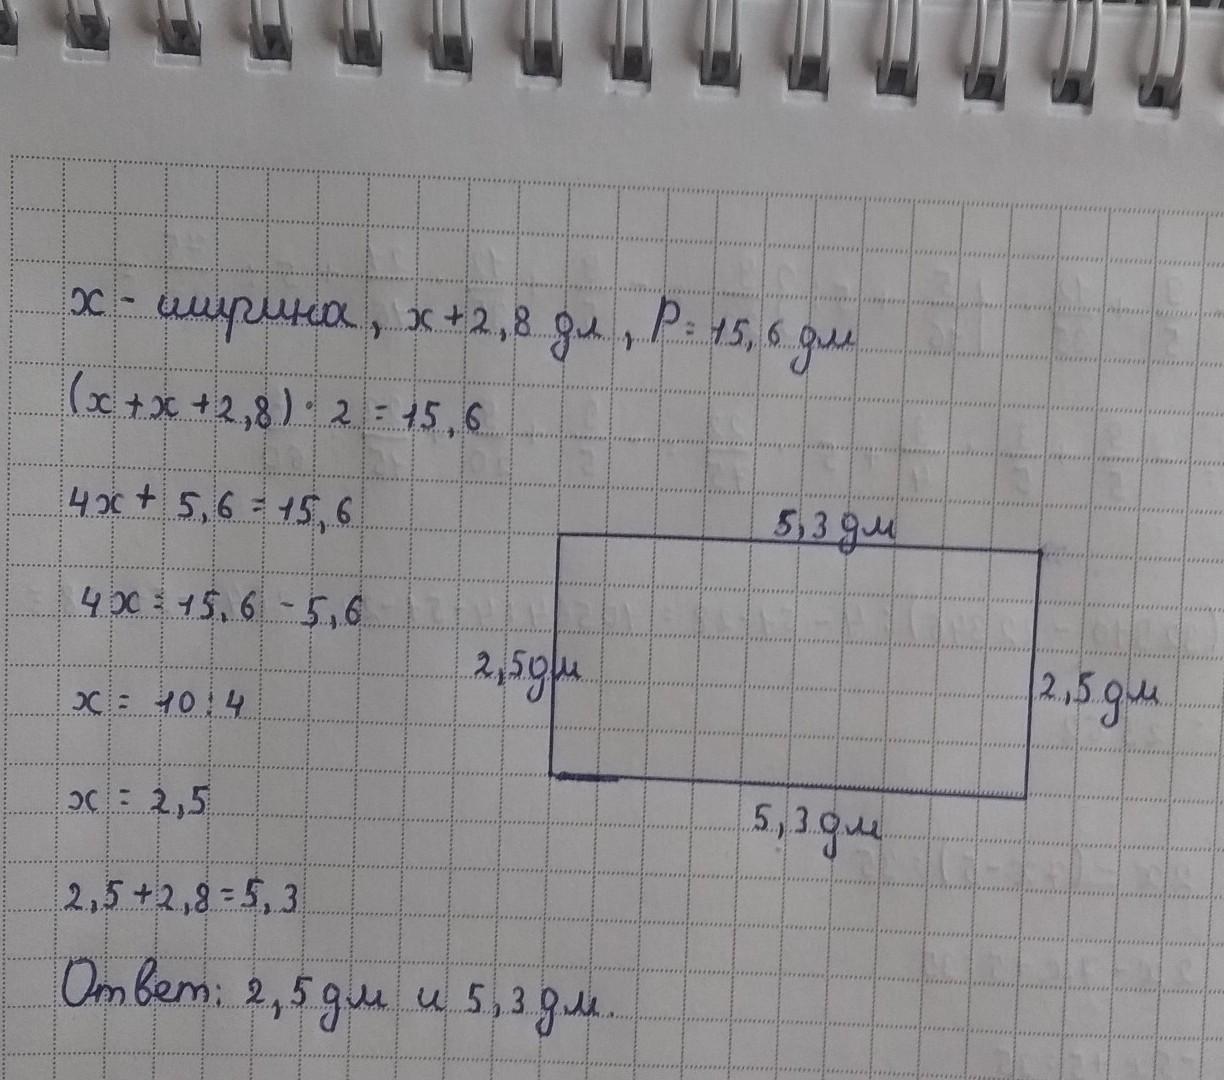 x - ширина, x + 2,8 дл, P = 15,6 дм
(x + x + 2,8) · 2 = 15,6
4x + 5,6 = 15,6
4x = 15,6 - 5,6
x = 10 : 4
x = 2,5
2,5 + 2,8 = 5,3
Ответ: 2,5 дм и 5,3 дм.
5,3 дм
2,5 дм
2,5 дм
5,3 дм